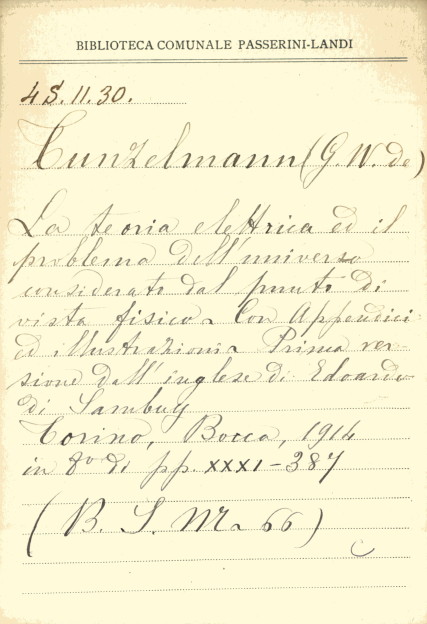 BIBLIOTECA COMUNALE PASSERINI-LANDI
4S.11.30.
Tunzelmann (G. W. de)
La teoria elettrica ed il
problema dell'universo
considerato dal punto di
vista fisico. Con Appendici
ed illustrazioni. Prima ver-
sione dall'inglese di Edoardo
di Sambuy
Torino, Bocca, 1914
in 8° di pp. XXXI-387
(B. S. M. 66)